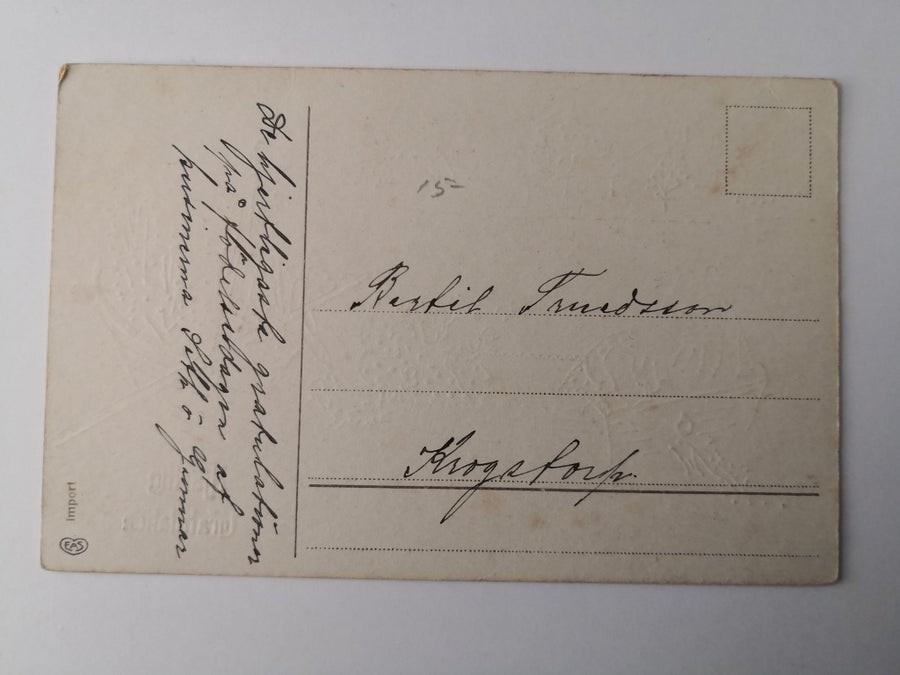 De hjertligaste gratulationer
på födelsedagen af
kusinerna Seth o Gunnar
15-
Bertil Truedsson
Krogstorp.
Import
EAS